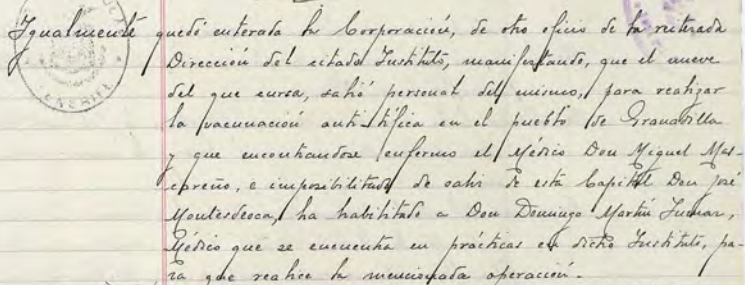 Igualmente quedó enterada la Corporación, de otro oficio de la reiterada
Dirección del citado Instituto, manifestando, que el nueve
del que cursa, salió personal del mismo, para realizar
la vacunación anti-tífica en el pueblo de Granadilla
y que encontrandose enfermo el Médico Don Miguel Mas-
careño, e imposibilitado de salir de esta Capital Don José
Montesdeoca, ha habilitado a Don Domingo Martín
Médico que se encuentra en prácticas en dicho Instituto, pa-
ra que realice la mencionada operación.-